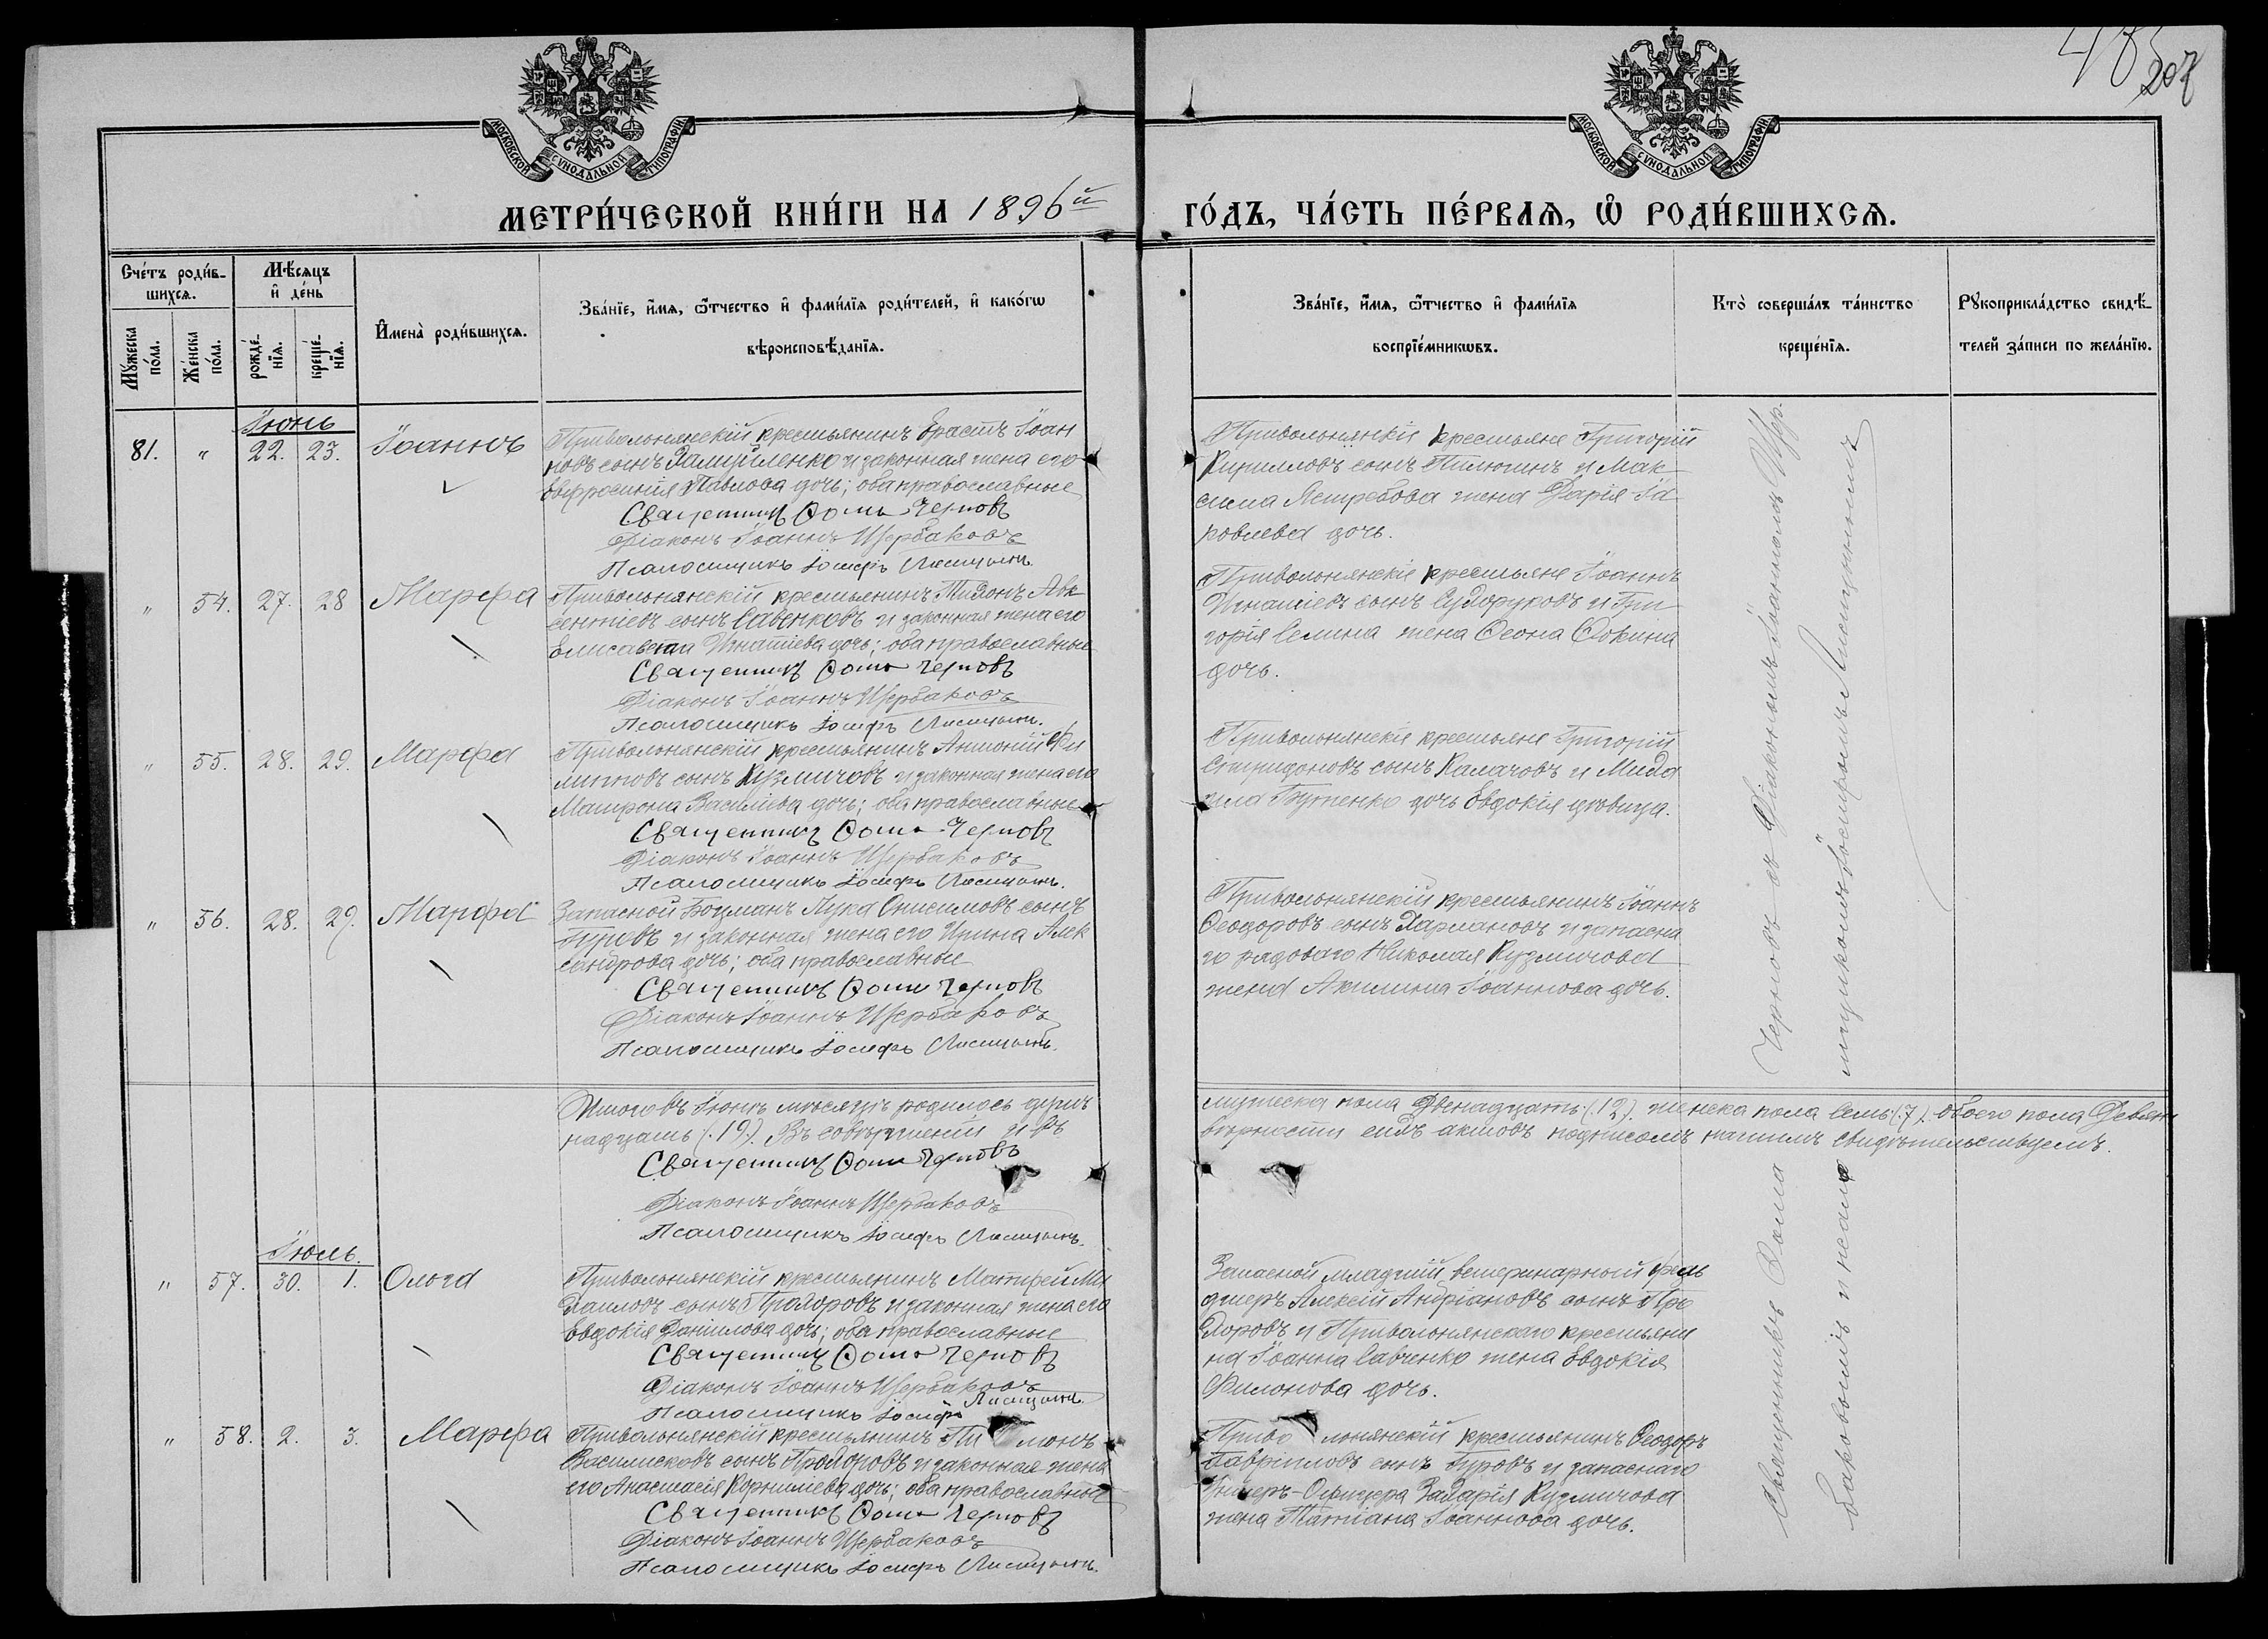 485
207
МОСКОВСКОЙ СѴНОДАЛЬНОЙ ТИПОГРАФІИ
МОСКОВСКОЙ СѴНОДАЛЬНОЙ ТИПОГРАФІИ
МЕТРИ́ЧЕСКОЙ КНИ́ГИ НА 1896й
ГО́ДЪ, ЧА́СТЬ ПЕ́РВАѦ, Ѿ РОДИ́ВШИХСѦ.
Сче́тъ роди́в-
шихсѧ.
Мꙋ́жеска по́ла.
Же́нска по́ла.
Мѣ́сѧцъ
и҆ де́нь
рожде́-
нїѧ.
креще́-
нїѧ.
И҆мена̀ роди́вшихсѧ.
Зва́нїе, и҆́мѧ, ѻ҆́тчество и҆ фами́лїѧ роди́телей, и҆ како́гѡ
вѣроисповѣ́данїѧ.
Зва́нїе, и҆́мѧ, ѻ҆́тчество и҆ фами́лїѧ
воспрїе́мникѡвъ.
Кто̀ соверша́лъ та́инство
креще́нїѧ.
Рꙋкоприкла́дство свидѣ́-
телей за́писи по жела́нїю.
Іюнь
81. " 22. 23. Іоаннъ
Привольнянскій крестьянинъ Ерастъ Іоан
новъ сынъ и законная жена его
Евфросинія Павлова дочь; оба православные
Священникъ Ѳома Черновъ
Діаконъ Іоаннъ Щербаковъ
Псаломщикъ Іосифъ Лисицынъ.
Привольнянскіе крестьяне Григорій
Кирилловъ сынъ Пилюгинъ и Мак
сима Ястребова жена Дарія Іа
ковлева дочь.
" 54. 27. 28 Марѳа
Привольнянскій крестьянинъ Тихонъ Авк
сентіевъ сынъ Савенковъ и законная жена его
Елисавета Игнатіева дочь; оба православные
Священникъ Ѳома Черновъ
Діаконъ Іоаннъ Щербаковъ
Псаломщикъ Іосифъ Лисицынъ.
Привольнянскіе крестьяне Іоаннъ
Игнатіевъ сынъ Сухоруковъ и Гри
горія Семина жена Ѳеона Ѳокина
дочь.
" 55. 28. 29. Марѳа
Привольнянскій крестьянинъ Антоній Фи
липповъ сынъ Кузмичовъ и законная жена его
Матрона Василіева дочь; оба православные
Священникъ Ѳома Черновъ
Діаконъ Іоаннъ Щербаковъ
Псаломщикъ Іосифъ Лисицынъ.
Привольнянскіе крестьяне Григорій
Спиридоновъ сынъ Калачовъ и Миха
ила Бутенко дочь Евдокія дѣвица.
" 56. 28. 29. Марѳа
Запасной Боцманъ Лука Онисимовъ сынъ
Гуровъ и законная жена его Ирина Алек
сандрова дочь; оба православные
Священникъ Ѳома Черновъ
Діаконъ Іоаннъ Щербаковъ
Псаломщикъ Іосифъ Лисицынъ.
Привольнянскій крестьянинъ Іоаннъ
Ѳеодоровъ сынъ Харлановъ и запасна
го рядоваго Николая Кузмичова
жена Акилина Іоаннова дочь.
Итого въ Іюнѣ мѣсяцѣ родилось душъ
надцать (.19). Въ совершеніи и въ
мужеска пола Двенадцать (.12). женска пола Семь (.7). обоего пола Девят
вѣрности сихъ актовъ подписомъ нашимъ свидѣтельствуемъ.
Священникъ Ѳома Черновъ
Діаконъ Іоаннъ Щербаковъ
Псаломщикъ Іосифъ Лисицынъ.
Іюль.
" 57. 30. 1. Ольга
Привольнянскій крестьянинъ Матѳей Ми
хаиловъ сынъ Прохоровъ и законная жена его
Евдокія Даніилова дочь; оба православные
Священникъ Ѳома Черновъ
Діаконъ Іоаннъ Щербаковъ
Псаломщикъ Іосифъ Лисицынъ.
Запасной младшій ветеринарный фель
дшеръ Алексій Андріановъ сынъ Про
хоровъ и Привольнянскаго крестьяни
на Іоанна Савченко жена Евдокія
Филонова дочь.
" 58. 2. 3. Марѳа
Привольнянскій крестьянинъ Пи монъ
Василисковъ сынъ Прохоровъ и законная жена
его Анастасія Корниліева дочь; оба православные
Священникъ Ѳома Черновъ
Діаконъ Іоаннъ Щербаковъ
Псаломщикъ Іосифъ Лисицынъ.
Приво льнянскій крестьянинъ Ѳеодоръ
Гавріиловъ сынъ Гуровъ и запаснаго
Унтеръ-Офицера Захарія Кузмичова
жена Татіана Іоаннова дочь.
Священникъ Ѳома Черновъ съ Діакономъ Іоанномъ Щер-
баковымъ и псаломщикомъ Іосифомъ Лисицынымъ